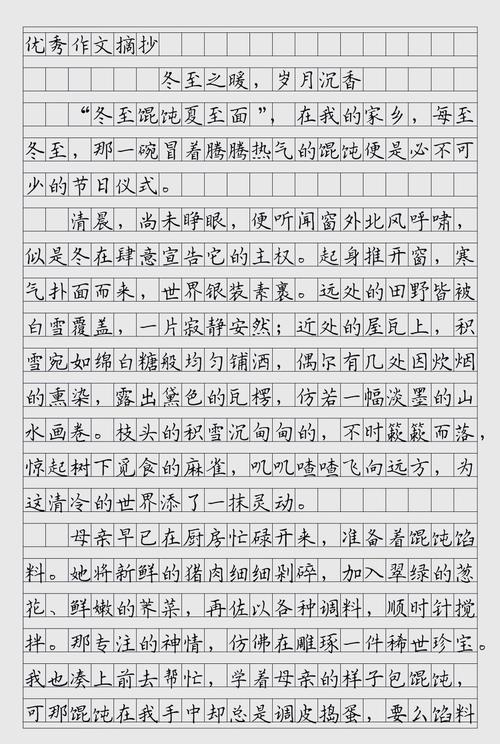 优秀作文摘抄
冬至之暖，岁月沉香
“冬至馄饨夏至面”，在我的家乡，每至
冬至，那一碗冒着腾腾热气的馄饨便是必不可
少的节日仪式。
清晨，尚未睁眼，便听闻窗外北风呼啸，
似是冬在肆意宣告它的主权。起身推开窗，寒
气扑面而来，世界银装素裹。远处的田野皆被
白雪覆盖，一片寂静安然；近处的屋瓦上，积
雪宛如绵白糖般均匀铺洒，偶尔有几处因炊烟
的熏染，露出黛色的瓦楞，仿若一幅淡墨的山
水画卷。枝头的积雪沉甸甸的，不时簌簌而落，
惊起树下觅食的麻雀，叽叽喳喳飞向远方，为
这清冷的世界添了一抹灵动。
母亲早已在厨房忙碌开来，准备着馄饨馅
料。她将新鲜的猪肉细细剁碎，加入翠绿的葱
花、鲜嫩的荠菜，再佐以各种调料，顺时针搅
拌。那专注的神情，仿佛在雕琢一件稀世珍宝。
我也凑上前去帮忙，学着母亲的样子包馄饨，
可那馄饨在我手中却总是调皮捣蛋，要么馅料